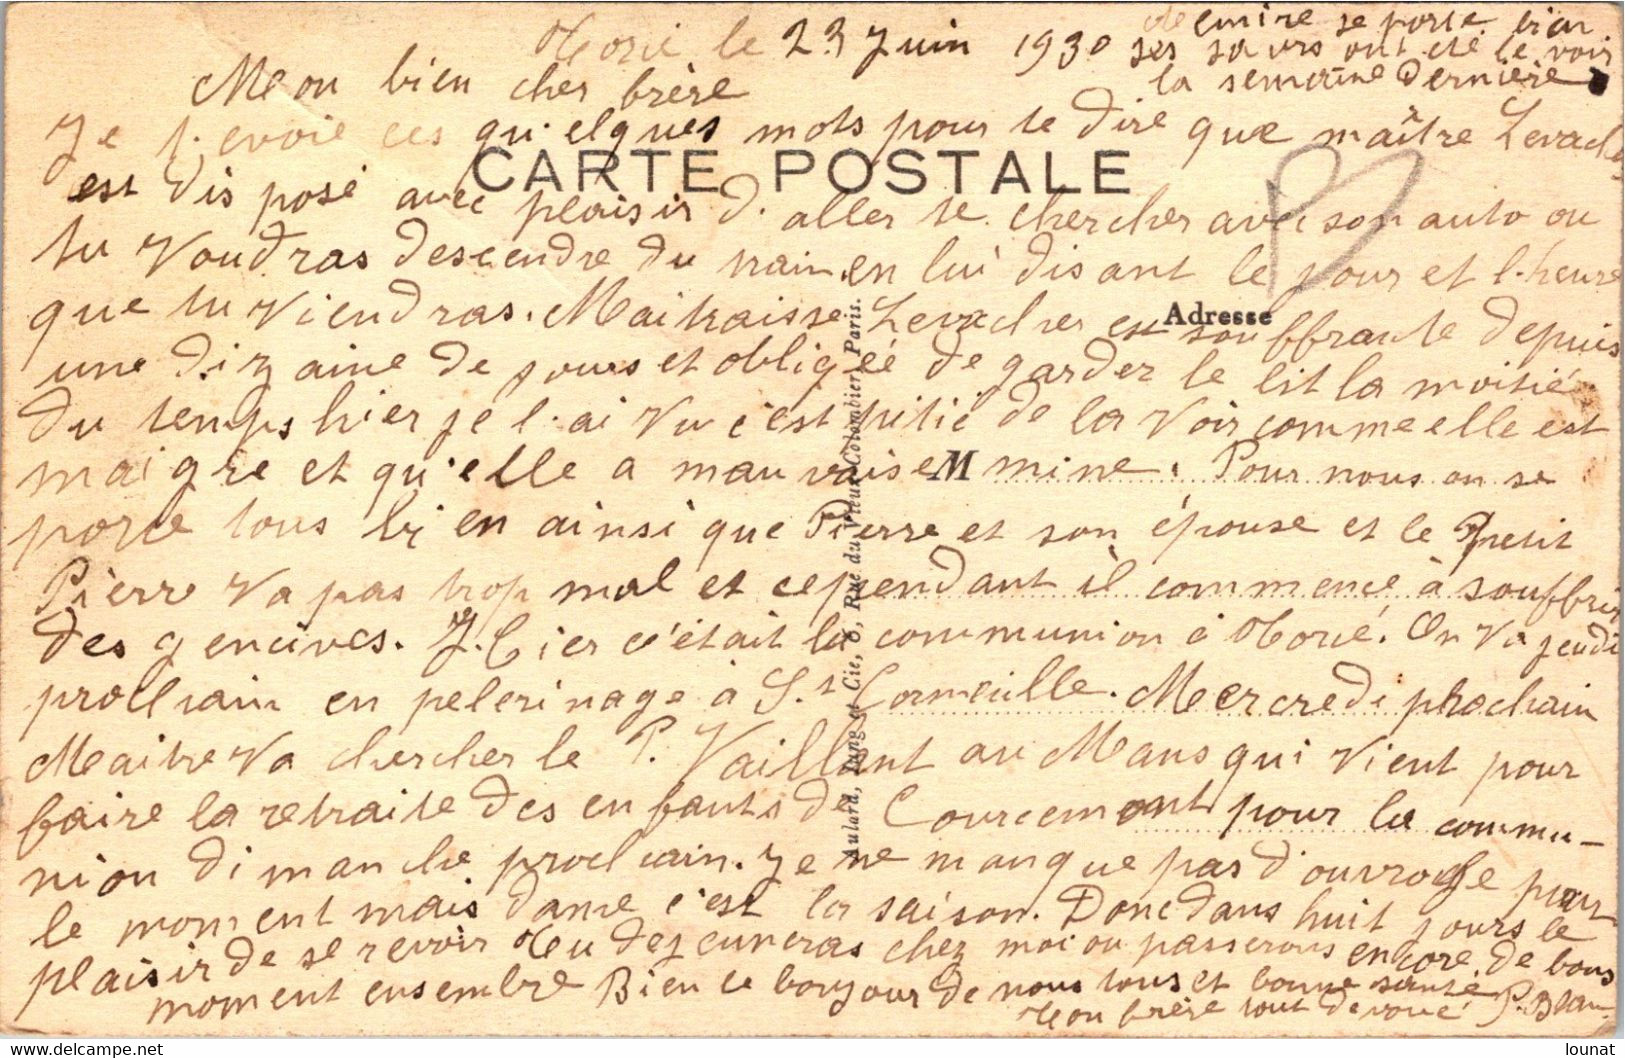 Torcé le 23 Juin 1930
se porte bien
ses sœurs ont été le voir
la semaine Dernière
Mon bien cher frère
Je t'envoie ces qu'elques mots pour te dire que maître Levacher
CARTE POSTALE
est disposé avec plaisir d'aller te chercher avec son auto ou
tu Voudras descendre du train en lui disant le jour et l'heure
que tu Viendras. Maitraisse Levacher est souffrante depuis
Adresse
une dizaine de jours et obligéé de garder le lit la moitié
du temps hier je l'ai Vu c'est pitié de la Voir comme elle est
maigre et qu'elle a mauvaise mine. Pour nous on se
M
porte tous bien ainsi que Pierre et son épouse et le petit
Pierre Va pas trop mal et cependant il commence à souffrir
des gencives. Hier c'était la communion à Torcé. On Va jeudi
prochain en pelerinage à St Corneuille. Mercredi prochain
Maitre Va chercher le P. Vaillant au Mans qui Vient pour
faire la retraite des enfants de Courcemont pour la commu-
nion dimanche prochain. Je ne manque pas d'ouvroge pour
le moment mais dame c'est la saison. Donc dans huit jours le
plaisir de se revoir tu dejeuneras chez moi ou passerons encore de bons
moment ensembre Bien le bonjour de nous tous et bonne santé
Ton frère tout devoué P. Blan
Aulard, Jung et Cie, 6, Rue du Vieux-Colombier, Paris.
lounat